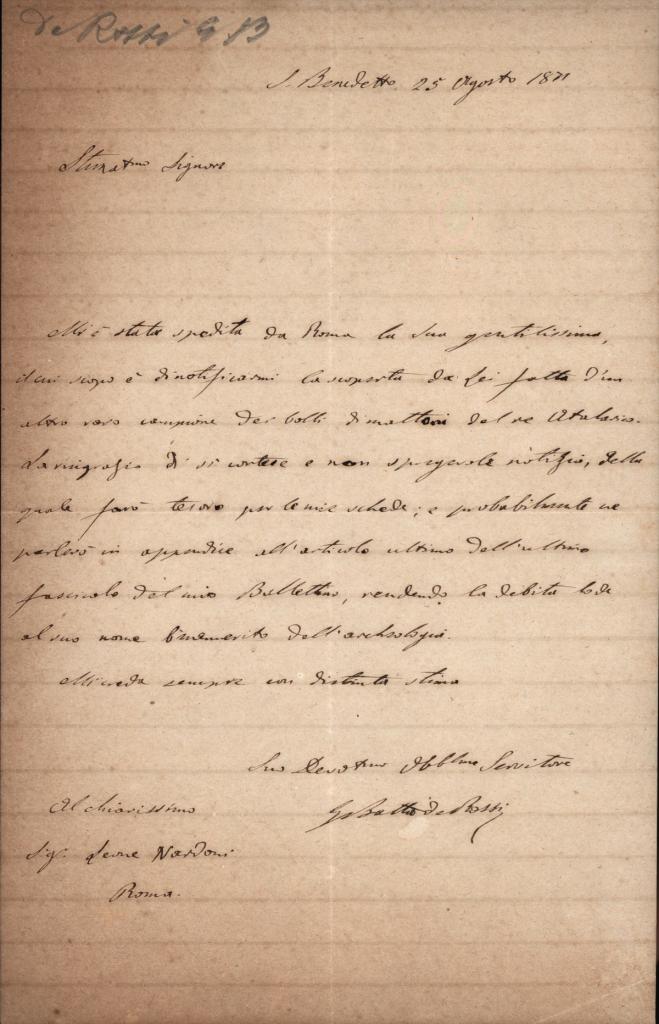 de Rossi G B
S. Benedetto 25 Agosto 1871
Stimatmo Signore
Mi è stata spedita da Roma la sua gentilissima,
il cui scopo è di notificarmi la scoperta da Lei fatta d'un
altro raro campione dei bolli di mattoni del re Atalarico.
La ringrazio di sì cortese e non spregevole notizia, della
quale farò tesoro per le mie schede; e probabilmente ne
parlerò in appendice all'articolo ultimo dell'ultimo
fascicolo del mio Bullettino, rendendo la debita lode
al suo nome benemerito dell'archeologia.
Mi creda sempre con distinta stima
Suo Devotmo Obblmo Servitore
G Batta de Rossi
Al chiarissimo
Sig. Leone Nardoni
Roma.